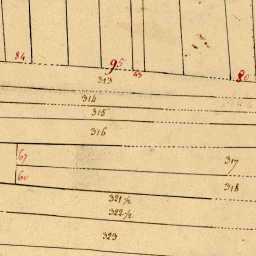 84
95
313
314
315
316
67
317
60
318
321½
322½
323